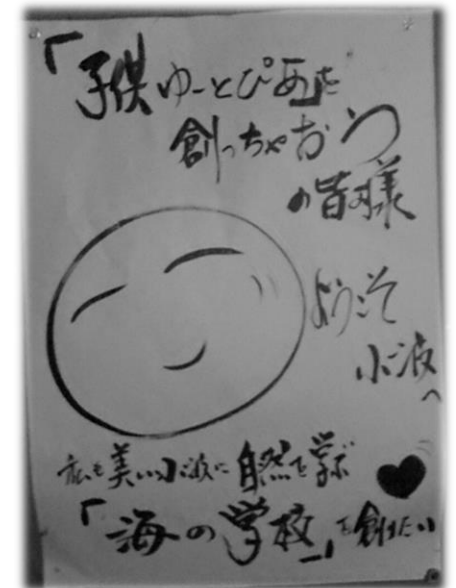 「子供ゆーとぴあ」を
創っちゃおう
の皆様
ようこそ
小波
へ
私も美しい小波に自然を学ぶ
「海の学校」を創りたい